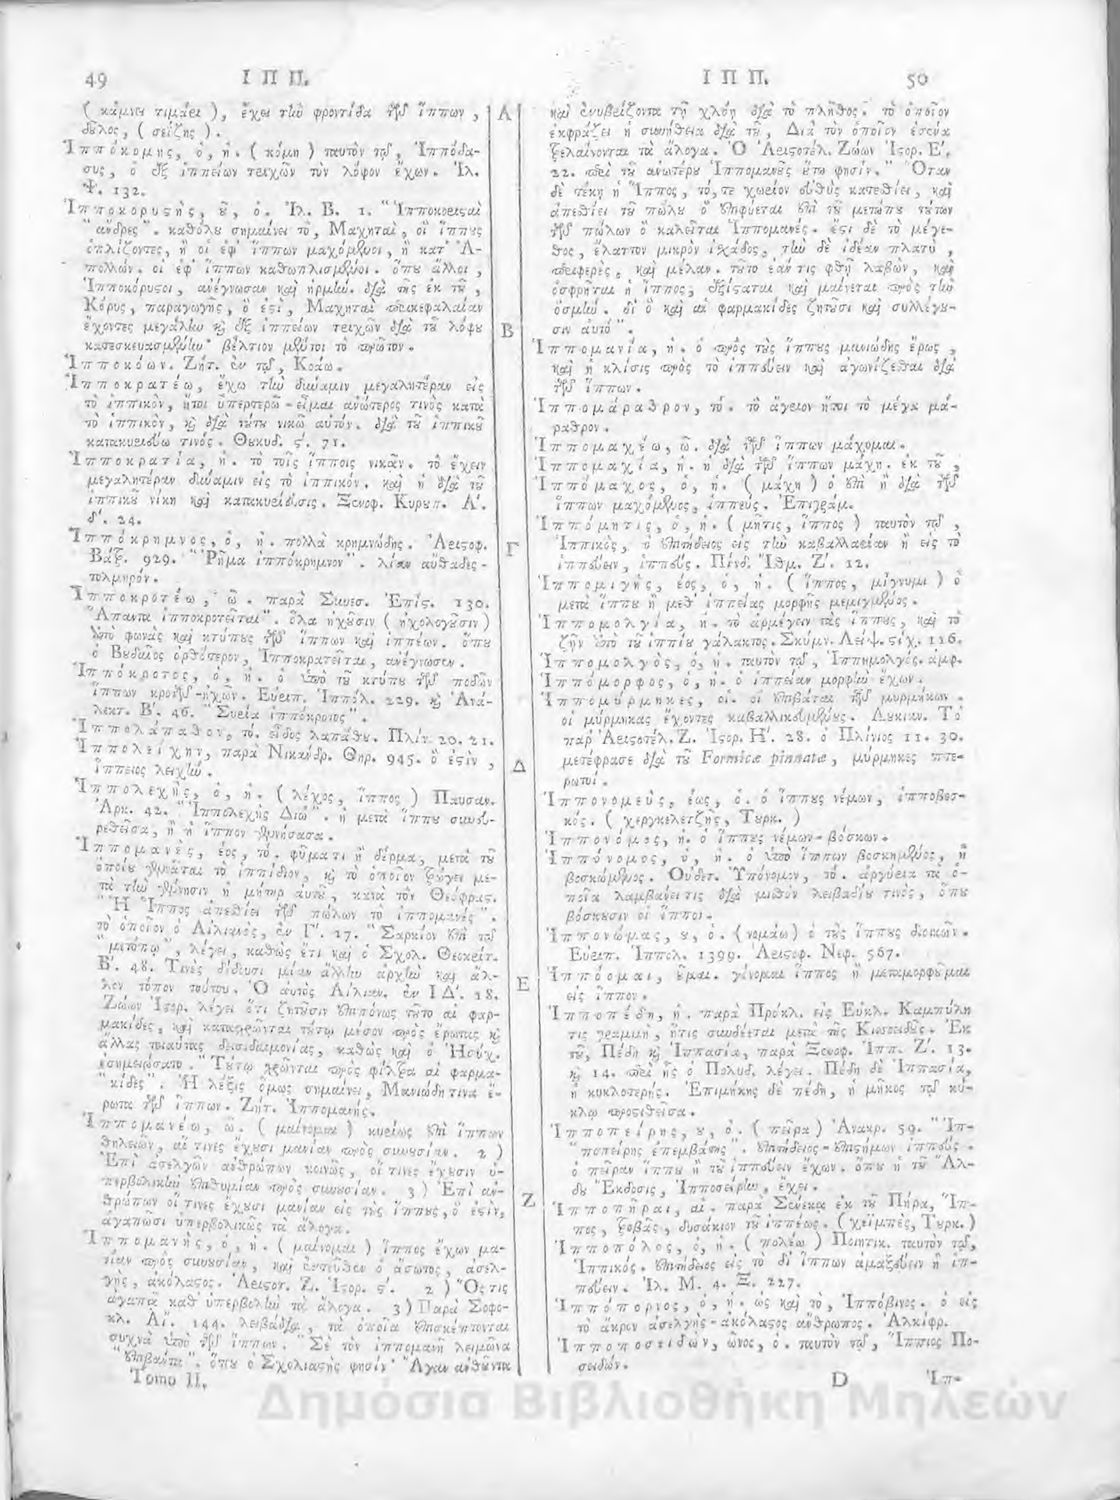 49 ΙΠΠ.
( κάμνει τιμάει ), ἔχει τὴν φροντίδα τῶν ἵππων,
δοῦλος, ( σεΐζης ).
Ἱππόκομης, ὁ, ἡ. ( κόμη ) ταυτὸν τῷ, Ἱππόδα-
συς, ὁ ἐξ ἱππείων τριχῶν τὸν λόφον ἔχων. Ἰλ.
Ψ. 132.
Ἱπποκορυστὴς, οῦ, ὁ. Ἰλ. Β. 1. "Ἱπποκορυσταὶ
"ἄνδρες". καθόλου σημαίνει τὸ, Μαχηταὶ, οἱ ἵππους
ὁπλίζοντες, ἢ οἱ ἐφ' ἵππων μαχόμενοι, ἢ κατ' Ἀ-
πολλών. οἱ ἐφ' ἵππων καθωπλισμένοι. ὅπου ἄλλοι,
Ἱπποκόρυστοι, ἀνέγνωσαν καὶ ἡρμήν. διὰ τῆς ἐκ τοῦ,
Κόρυς, παραγωγῆς, ὅ ἐστι, Μαχηταὶ περικεφαλαίαν
ἔχοντες μεγάλην καὶ ἐξ ἱππείων τριχῶν διὰ τοῦ λόφου
κατεσκευασμένην· βέλτιον μέντοι τὸ πρῶτον.
Ἱπποκόων. Ζήτ. ἐν τῷ, Κοάω.
Ἱπποκρατέω, ἔχω τὴν δύναμιν μεγαλητέραν εἰς
τὸ ἱππικὸν, ἤτοι ὑπερτερῶ - εἶμαι ἀνώτερος τινὸς κατὰ
τὸ ἱππικὸν, καὶ διὰ τούτου νικῶ αὐτόν. διὰ τοῦ ἱππικοῦ
κατακυριεύω τινός. Θουκυδ. ς'. 71.
Ἱπποκρατία, ἡ. τὸ τοῖς ἵπποις νικᾶν. τὸ ἔχειν
μεγαλητέραν δύναμιν εἰς τὸ ἱππικόν. καὶ ἡ διὰ τοῦ
ἱππικοῦ νίκη καὶ κατακυρίευσις. Ξενοφ. Κυρουπ. Α'.
δ'. 24.
Ἱππόκρημνος, ὁ, ἡ. πολλὰ κρημνώδης. Ἀριστοφ.
Βάτρ. 929. "Ῥῆμα ἱππόκρημνον". λίαν αὔθαδες-
τολμηρόν.
Ἱπποκροτέω, ῶ. παρὰ Συνεσ. Ἐπις. 130.
"Ἅπαντα ἱπποκροτεῖται". ὅλα ἠχοῦσιν ( ἠχολογοῦσιν )
ὑπὸ φωνὰς καὶ κτύπους τῶν ἵππων καὶ ἱππέων. ὅπου
ὁ Βυδαῖος ὀρθότερον, Ἱπποκρατεῖται, ἀνέγνωσεν.
Ἱππόκροτος, ὁ, ἡ. ὁ ὑπὸ τοῦ κτύπου τῶν ποδῶν
ἵππων κροτῶν-ἠχῶν. Εὐριπ. Ἱππόλ. 229. καὶ Ἀνά-
λεκτ. Β'. 46. "Συρία ἱππόκροτος".
Ἱππολάπαθον, τό. εἶδος λαπάθου. Πλίν. 20. 21.
Ἱππολείχην, παρὰ Νικάνδρ. Θηρ. 945. ὅ ἐστιν,
ἵππειος λειχήν.
Ἱππολεχὴς, ὁ, ἡ. ( λέχος, ἵππος ) Παυσαν.
Ἀρκ. 42. "Ἱππολεχὴς Διώ". ἡ μετὰ ἵππου συνευ-
ρεθεῖσα, ἢ ἡ ἵππον γεννήσασα.
Ἱππομανὲς, έος, τό. φῦμά τι ἢ δέρμα, μετὰ τοῦ
ὁποίου γεννᾶται τὸ ἱππίδιον, καὶ τὸ ὁποῖον τρώγει με-
τὰ τὴν γέννησιν ἡ μήτηρ αὐτοῦ, κατὰ τὸν Θεόφραστ.
"Ἡ Ἵππος ἀπεσθίει τῶν πώλων τὸ ἱππομανές".
τὸ ὁποῖον ὁ Αἰλιανὸς, ἐν Γ'. 17. "Σαρκίον ἐπὶ τῷ
"μετώπῳ", λέγει, καθὼς ἔτι καὶ ὁ Σχολ. Θεοκρίτ.
Β'. 48. Τινὲς δίδουσι μίαν ἄλλην ἀρχὴν καὶ ἄλ-
λον τόπον τούτου. Ὁ αὐτὸς Αἰλιαν. ἐν ΙΔ'. 18.
Ζώων Ἱστορ. λέγει ὅτι ζητοῦσιν ἐπιπόνως τοῦτο αἱ φαρ-
μακίδες, καὶ καταχρῶνται τούτῳ μέσον πρὸς ἔρωτας καὶ
ἄλλας τοιαύτας δεισιδαιμονίας, καθὼς καὶ ὁ Ἡσύχ.
ἐσημειώσατο. "Τούτῳ χρῶνται πρὸς φίλτρα αἱ φαρμα-
"κίδες". Ἡ λέξις ὅμως σημαίνει, Μανιώδη τινα ἔ-
ρωτα τῶν ἵππων. Ζήτ. Ἱππομανής.
Ἱππομανέω, ῶ. ( μαίνομαι ) κυρίως ἐπὶ ἵππων
θηλειῶν, αἵ τινες ἔχουσι μανίαν πρὸς συνουσίαν. 2 )
Ἐπὶ ἀσελγῶν ἀνθρώπων κοινῶς, οἵ τινες ἔχουσιν ὑ-
περβολικὴν ἐπιθυμίαν πρὸς συνουσίαν. 3 ) Ἐπὶ ἀν-
θρώπων οἵ τινες ἔχουσι μανίαν εἰς τοὺς ἵππους, ὅ ἐστιν,
ἀγαπῶσι ὑπερβολικῶς τὰ ἄλογα.
Ἱππομανὴς, ὁ, ἡ. ( μαίνομαι ) ἵππος ἔχων μα-
νίαν πρὸς συνουσίαν, καὶ ἐντεῦθεν ὁ ἄσωτος, ἀσελ-
γὴς, ἀκόλαστος. Ἀριστοτ. Ζ. Ἱστορ. ς'. 2 ) Ὅςτις
ἀγαπᾷ καθ' ὑπερβολὴν τὰ ἄλογα. 3 ) Παρὰ Σοφο-
κλ. Αἴ. 144. λειβάδια, τὰ ὁποῖα ἐπισκέπτονται
συχνὰ ὑπὸ τῶν ἵππων. "Σὲ τὸν ἱππομανῆ λειμῶνα
"ἐπιβάντα". ὅπου ὁ Σχολιαστὴς φησίν· Ἄγαν ἀνθοῦντα
Tomo II.
Α
Β
Γ
Δ
Ε
Ζ
ΙΠΠ. 50
καὶ ἐνυβρίζοντα τῇ χλόῃ διὰ τὸ πλῆθος. τὸ ὁποῖον
ἐκφράζει ἡ συνήθεια διὰ τοῦ, Διὰ τὸν ὁποῖον ἐσένα
ξελαίνονται τὰ ἄλογα. Ὁ Ἀριστοτέλ. Ζώων Ἱστορ. Ε'.
22. περὶ τοῦ ἀνωτέρω Ἱππομανοῦς οὕτω φησίν. "Ὅταν
δὲ τέκῃ ἡ Ἵππος, τό, τε χωρίον εὐθὺς κατεσθίει, καὶ
ἀπεσθίει τοῦ πώλου ὃ ἐπιφύεται ἐπὶ τοῦ μετώπου τούτων
τῶν πώλων ὃ καλεῖται Ἱππομανές. ἔστι δὲ τὸ μέγε-
θος, ἔλαττον μικρὸν ἰσχάδος, τὴν δὲ ἰδέαν πλατὺ,
περιφερὲς, καὶ μέλαν. τοῦτο ἐάν τις φθῇ λαβὼν, καὶ
ὀσφρηται ἡ ἵππος, ἐξίσταται καὶ μαίνεται πρὸς τὴν
ὀσμήν. δι' ὃ καὶ αἱ φαρμακίδες ζητοῦσι καὶ συλλέγου-
σιν αὐτό".
Ἱππομανία, ἡ. ὁ πρὸς τοὺς ἵππους μανιώδης ἔρως,
καὶ ἡ κλίσις πρὸς τὸ ἱππεύειν καὶ ἀγωνίζεσθαι διὰ
τῶν ἵππων.
Ἱππομάραθρον, τό. τὸ ἄγριον ἤτοι τὸ μέγα μά-
ραθρον.
Ἱππομαχέω, ῶ. διὰ τῶν ἵππων μάχομαι.
Ἱππομαχία, ἡ. ἡ διὰ τῶν ἵππων μάχη. ἐκ τοῦ,
Ἱππόμαχος, ὁ, ἡ. ( μάχη ) ὁ ἐπὶ ἢ διὰ τῶν
ἵππων μαχόμενος, ἱππεύς. Ἐπιγραμ.
Ἱππόμητις, ὁ, ἡ. ( μῆτις, ἵππος ) ταυτὸν τῷ,
Ἱππικὸς, ὁ ἐπιτήδειος εἰς τὴν καβαλλαρίαν ἢ εἰς τὸ
ἱππεύειν, ἱππεύς. Πίνδ. Ἰσθμ. Ζ'. 12.
Ἱππομιγὴς, έος, ὁ, ἡ. ( ἵππος, μίγνυμι ) ὁ
μετὰ ἵππου ἢ μεθ' ἱππείας μορφῆς μεμιγμένος.
Ἱππομολγία, ἡ. τὸ ἀρμέγειν τὰς ἵππους, καὶ τὸ
ζῆν ὑπὸ τοῦ ἱππίου γάλακτος. Σκύμν. Λείψ. στίχ. 116.
Ἱππομολγὸς, ὁ, ἡ. ταυτὸν τῷ, Ἱππημολγός. ἀμφ.
Ἱππόμορφος, ὁ, ἡ. ὁ ἱππείαν μορφὴν ἔχων.
Ἱππομύρμηκες, οἱ. οἱ ἐπιβάται τῶν μυρμήκων.
οἱ μύρμηκας ἔχοντες καβαλλικευμένους. Λουκιαν. Τὸ
παρ' Ἀριστοτέλ. Ζ. Ἱστορ. Η'. 28. ὁ Πλίνιος 11. 30.
μετέφρασε διὰ τοῦ Formicæ pinnatæ, μύρμηκες πτε-
ρωτοί.
Ἱππονομεὺς, έως, ὁ. ὁ ἵππους νέμων, ἱπποβοσ-
κός. ( χεργκελετζῆς, Τουρκ. )
Ἱππονόμος, ἡ. ὁ ἵππους νέμων-βόσκων.
Ἱππόνομος, ὁ, ἡ. ὁ ὑπὸ ἵππων βοσκημένος, ἢ
βοσκώμενος. Οὐδετ. Ὑπόνομον, τό. ἀργύρια τὰ ὁ-
ποῖα λαμβάνει τις διὰ μισθὸν λειβαδίου τινὸς, ὅπου
βόσκουσιν οἱ ἵπποι.
Ἱππονώμας, ου, ὁ. ( νομάω ) ὁ τοὺς ἵππους διοικῶν.
Εὐριπ. Ἱππολ. 1399. Ἀριστοφ. Νεφ. 567.
Ἱππόομαι, οῦμαι. γίνομαι ἵππος ἢ μεταμορφοῦμαι
εἰς ἵππον.
Ἱπποπέδη, ἡ. παρὰ Πρόκλ. εἰς Εὐκλ. Καμπύλη
τις γραμμὴ, ἥτις συνδέεται μετὰ τῆς Κισσοειδοῦς. Ἐκ
τοῦ, Πέδη καὶ Ἱππασία, παρὰ Ξενοφ. Ἱππ. Ζ'. 13.
καὶ 14. περὶ ἧς ὁ Πολυδ. λέγει. Πέδη δὲ Ἱππασία,
ἡ κυκλοτερής. Ἐπιμήκης δὲ πέδη, ἡ μῆκος τῷ κύ-
κλῳ προστιθεῖσα.
Ἱπποπείρης, ου, ὁ. ( πεῖρα ) Ἀνακρ. 59. "Ἱπ-
"ποπείρης ἐπεμβάτης". ἐπιτήδειος-ἐπιστήμων ἱππεύς.
ὁ πεῖραν ἵππου ἢ τοῦ ἱππεύειν ἔχων. ὅπου ἡ τοῦ Ἄλ-
δου Ἔκδοσις, Ἱπποσείρην, ἔχει.
Ἱπποπῆραι, αἱ. παρὰ Σενέκα ἐκ τοῦ Πήρα, Ἵπ-
πος, τροβᾶς, δυσάκιον τοῦ ἱππέως. ( χεϊμπὲς, Τουρκ. )
Ἱπποπόλος, ὁ, ἡ. ( πολέω ) Ποιητικ. ταυτὸν τῷ,
Ἱππικός. ἐπιτήδειος εἰς τὸ δι' ἵππων ἁμαξεύειν ἢ ἱπ-
πεύειν. Ἰλ. Μ. 4. Ξ. 227.
Ἱππόπορνος, ὁ, ἡ. ὡς καὶ τὸ, Ἱππόβινος. ὁ εἰς
τὸ ἄκρον ἀσελγὴς-ἀκόλαστος ἄνθρωπος. Ἀλκίφρ.
Ἱπποποσειδῶν, ῶνος, ὁ. ταυτὸν τῷ, Ἵππιος Πο-
σειδῶν.
D Ἱπ-
Δημόσια Βιβλιοθήκη Μηλεών